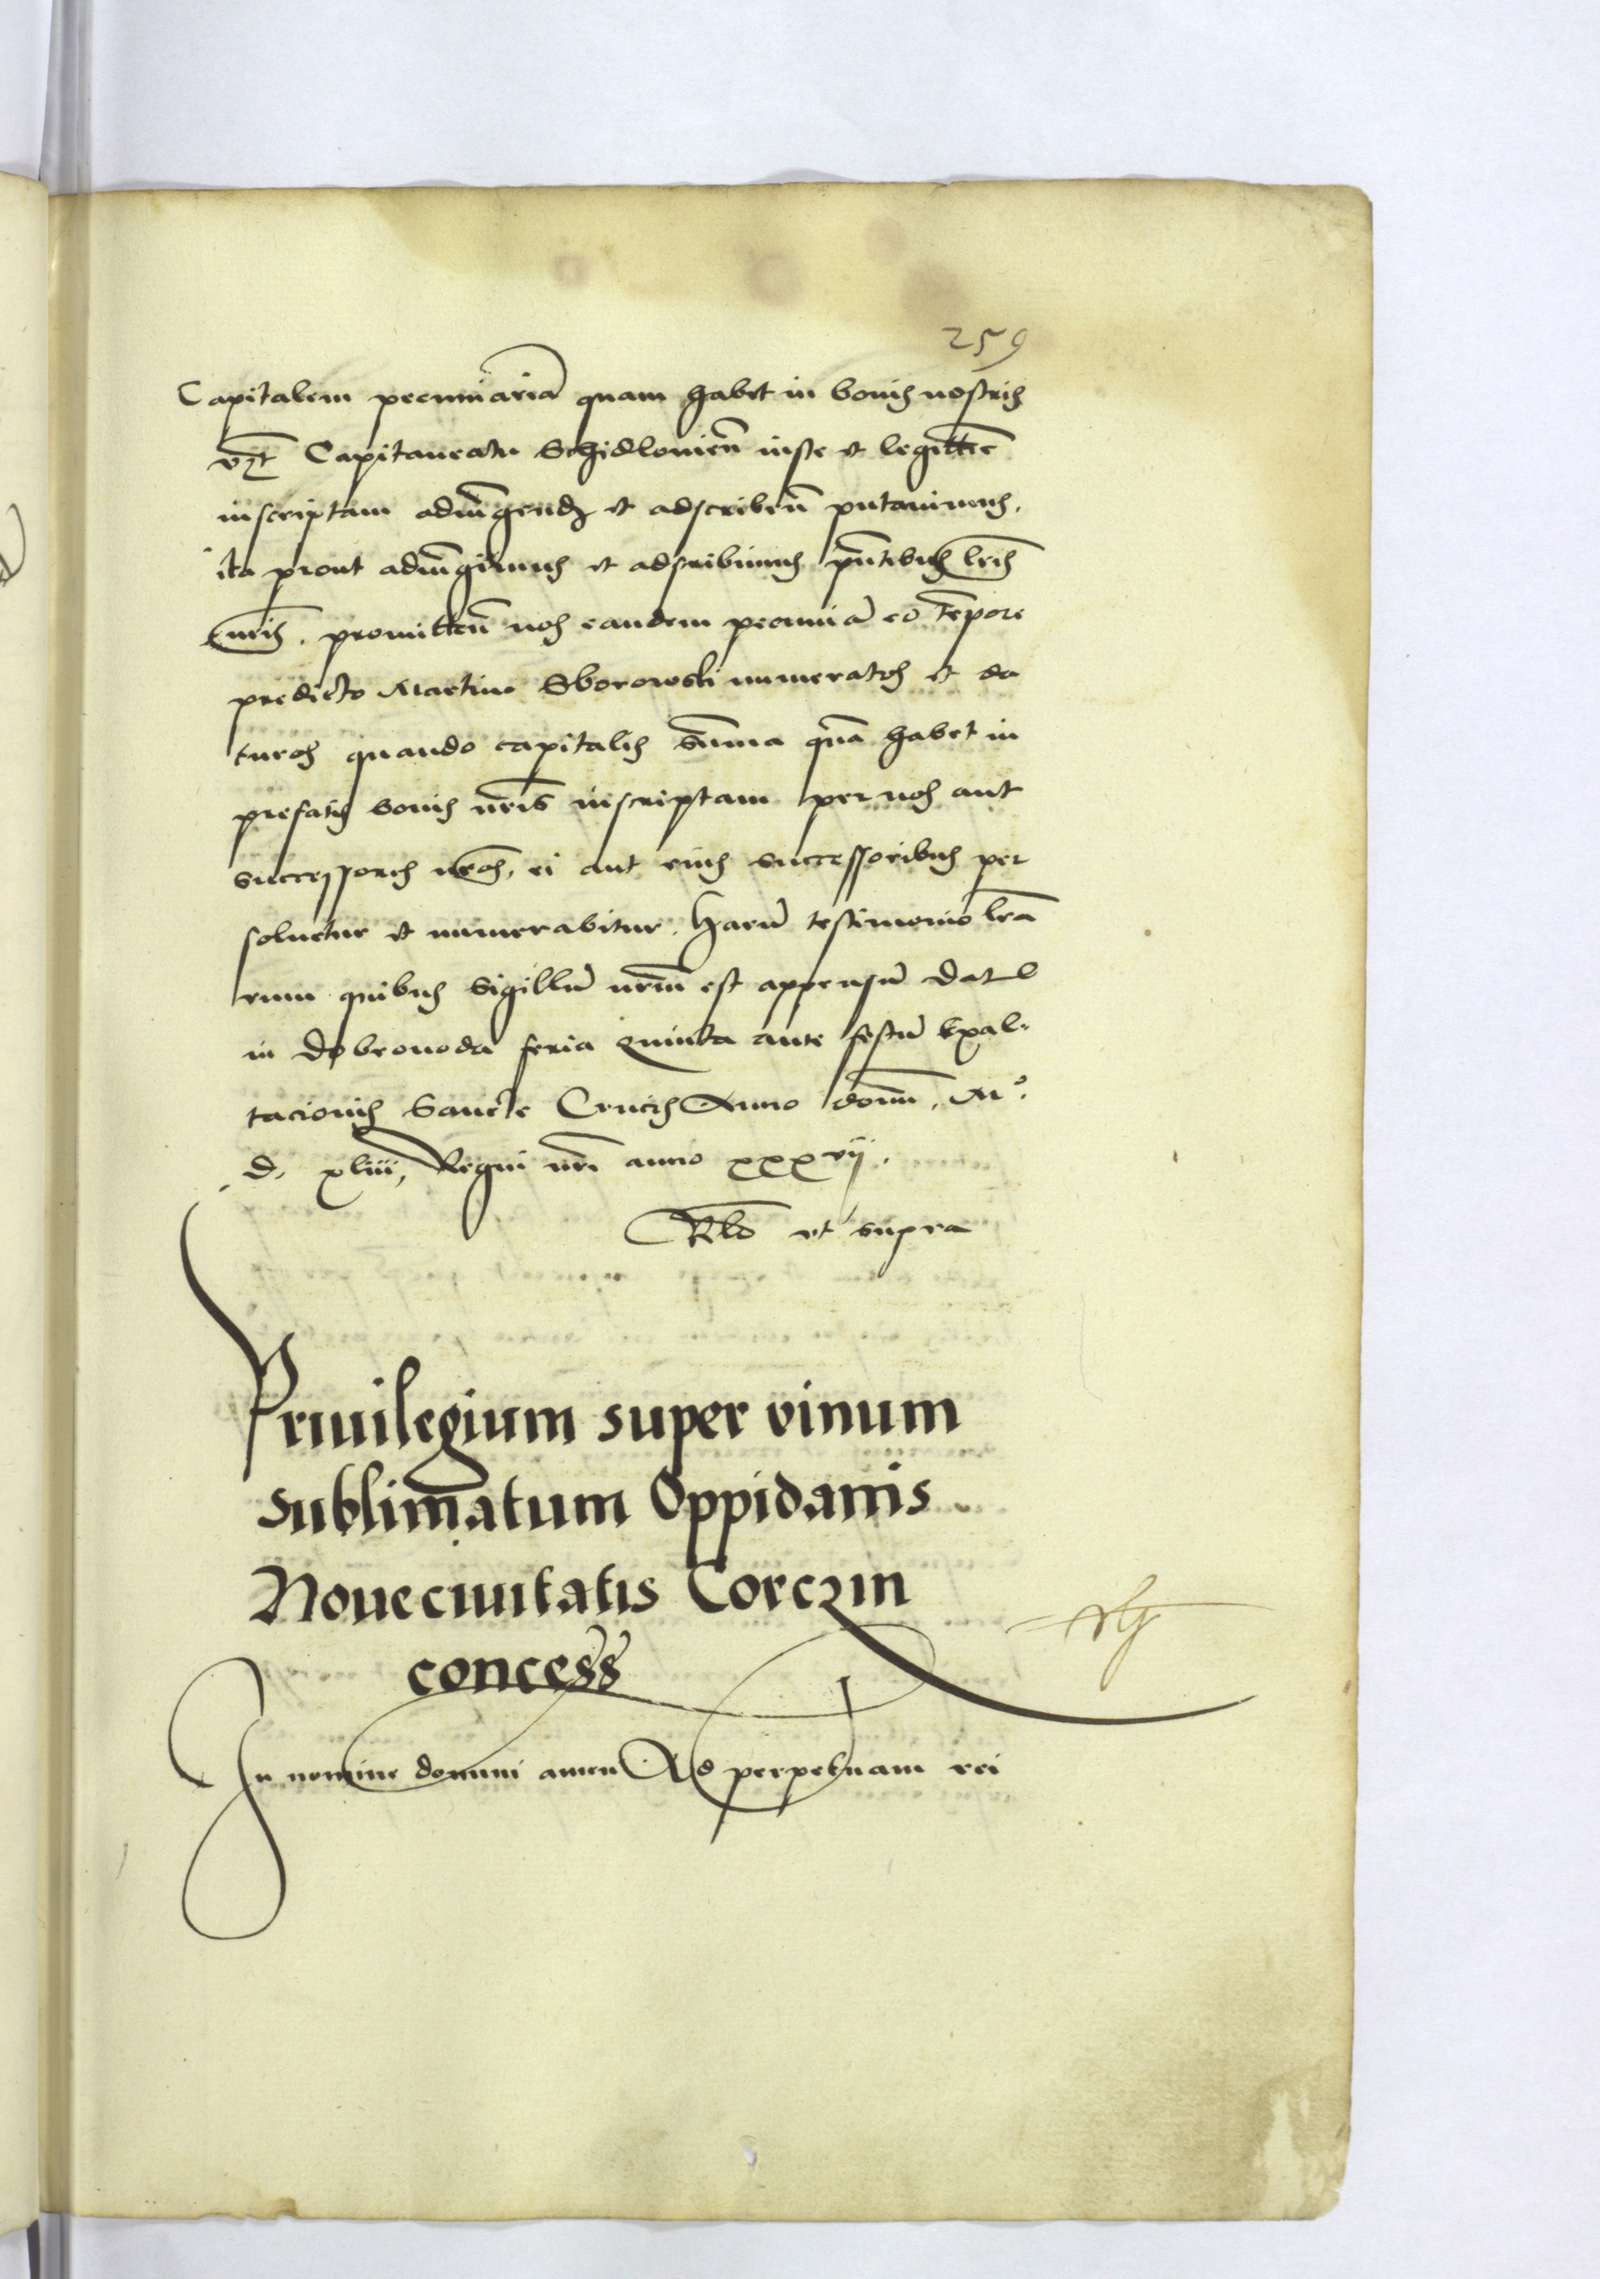 259
Capitalem pecuniariā quam habet in bonis nostris
vzt Capitaneatu Schidlovieñ iuste et legittēe
inscriptam adiūgendā et adscribeñ putavimus.
ita prout adiūgimus et adscribimus pñtibus lrīs
nrīs. promitteñ nos eandem pecuniā eo tēpore
predicto Martino Sborowski numeratos et da
turos quando capitalis sūma quā habet in
prefatis bonis nrīs inscriptam per nos aut
successores nrōs, ei aut eius successoribus per
soluetur et numerabitur. Harū testimonio lrā
rum quibus Sigillū nrūm est appensū Dat
in dobrowoda feria quinta ante festū Exal-
tacionis Sancte Crucis Anno domī. Mº.
D. xliii, Regni nrī anno xxxvii.
Rlō ut supra
Priuilegium super vinum
sublimatum Oppidanis
Noue ciuitatis Corczin
concess
In nomine domini amen Ad perpetuam rei